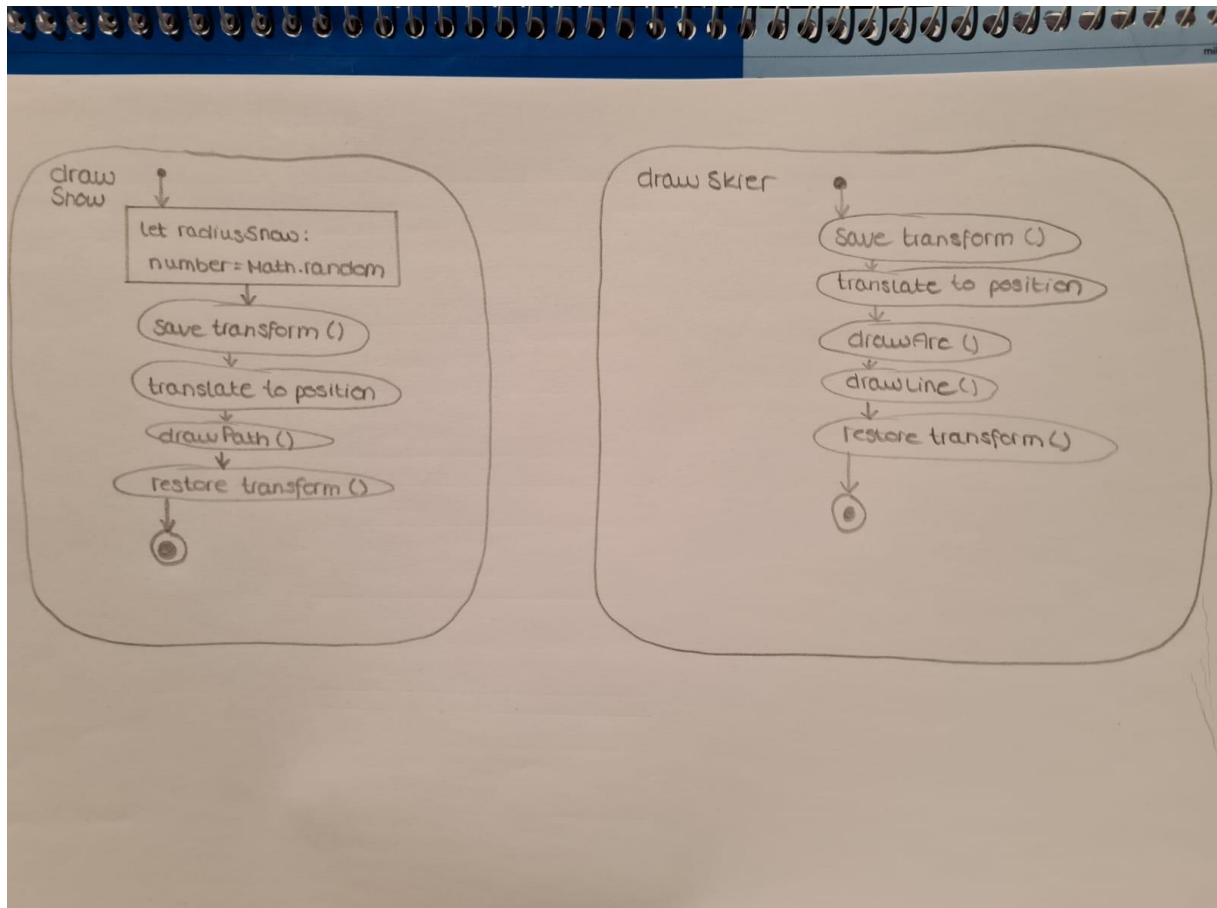 mil
draw
Snow
let radiusSnow:
number=Math.random
save transform ()
translate to position
drawPath ()
restore transform ()
draw Skier
save transform ()
translate to position
drawArc ()
drawLine ()
restore transform ()